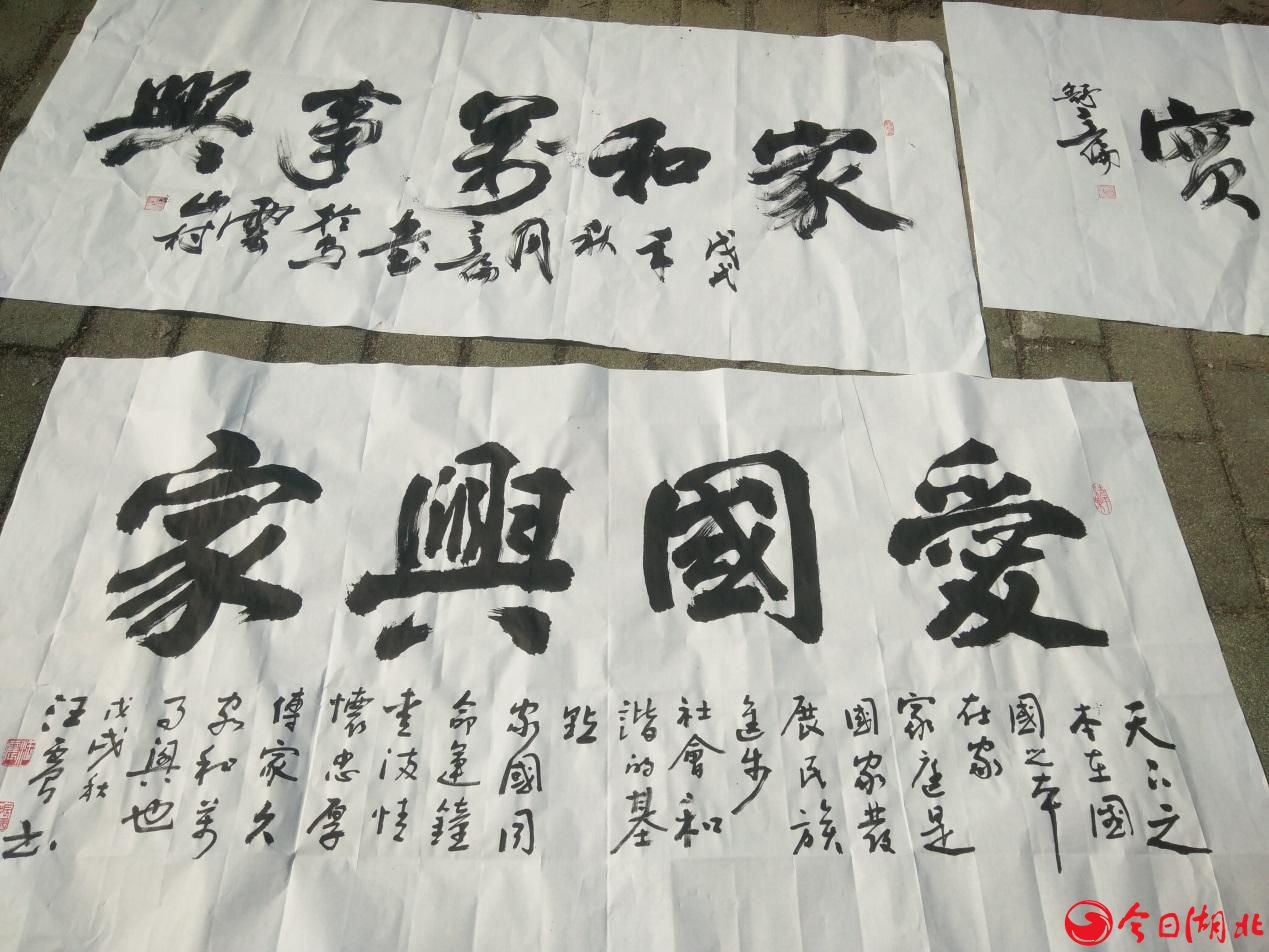 家和萬事興
戊戌年秋月
書於
雲山村
愛國興家
天下之
本在國
國之本
在家
家庭是
國家發
展民族
進步
社會和
諧的基
點
家國同
命運鐘
情
懷忠厚
傳家久
家和萬
事興也
戊戌秋
汪
書
今日湖北